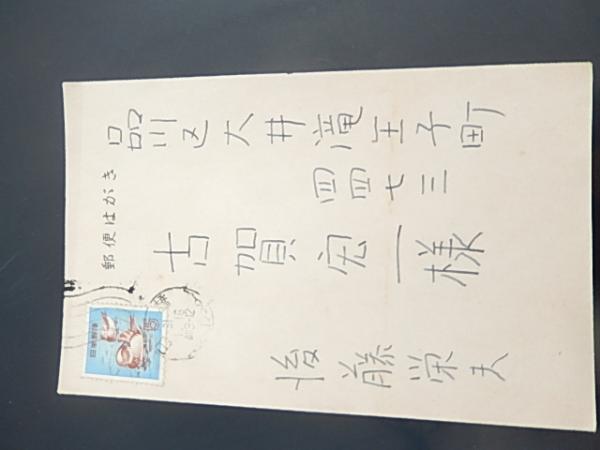 郵便はがき
品川区大井滝王子町
四四七三
古賀宛一様
後藤栄夫
日本郵便